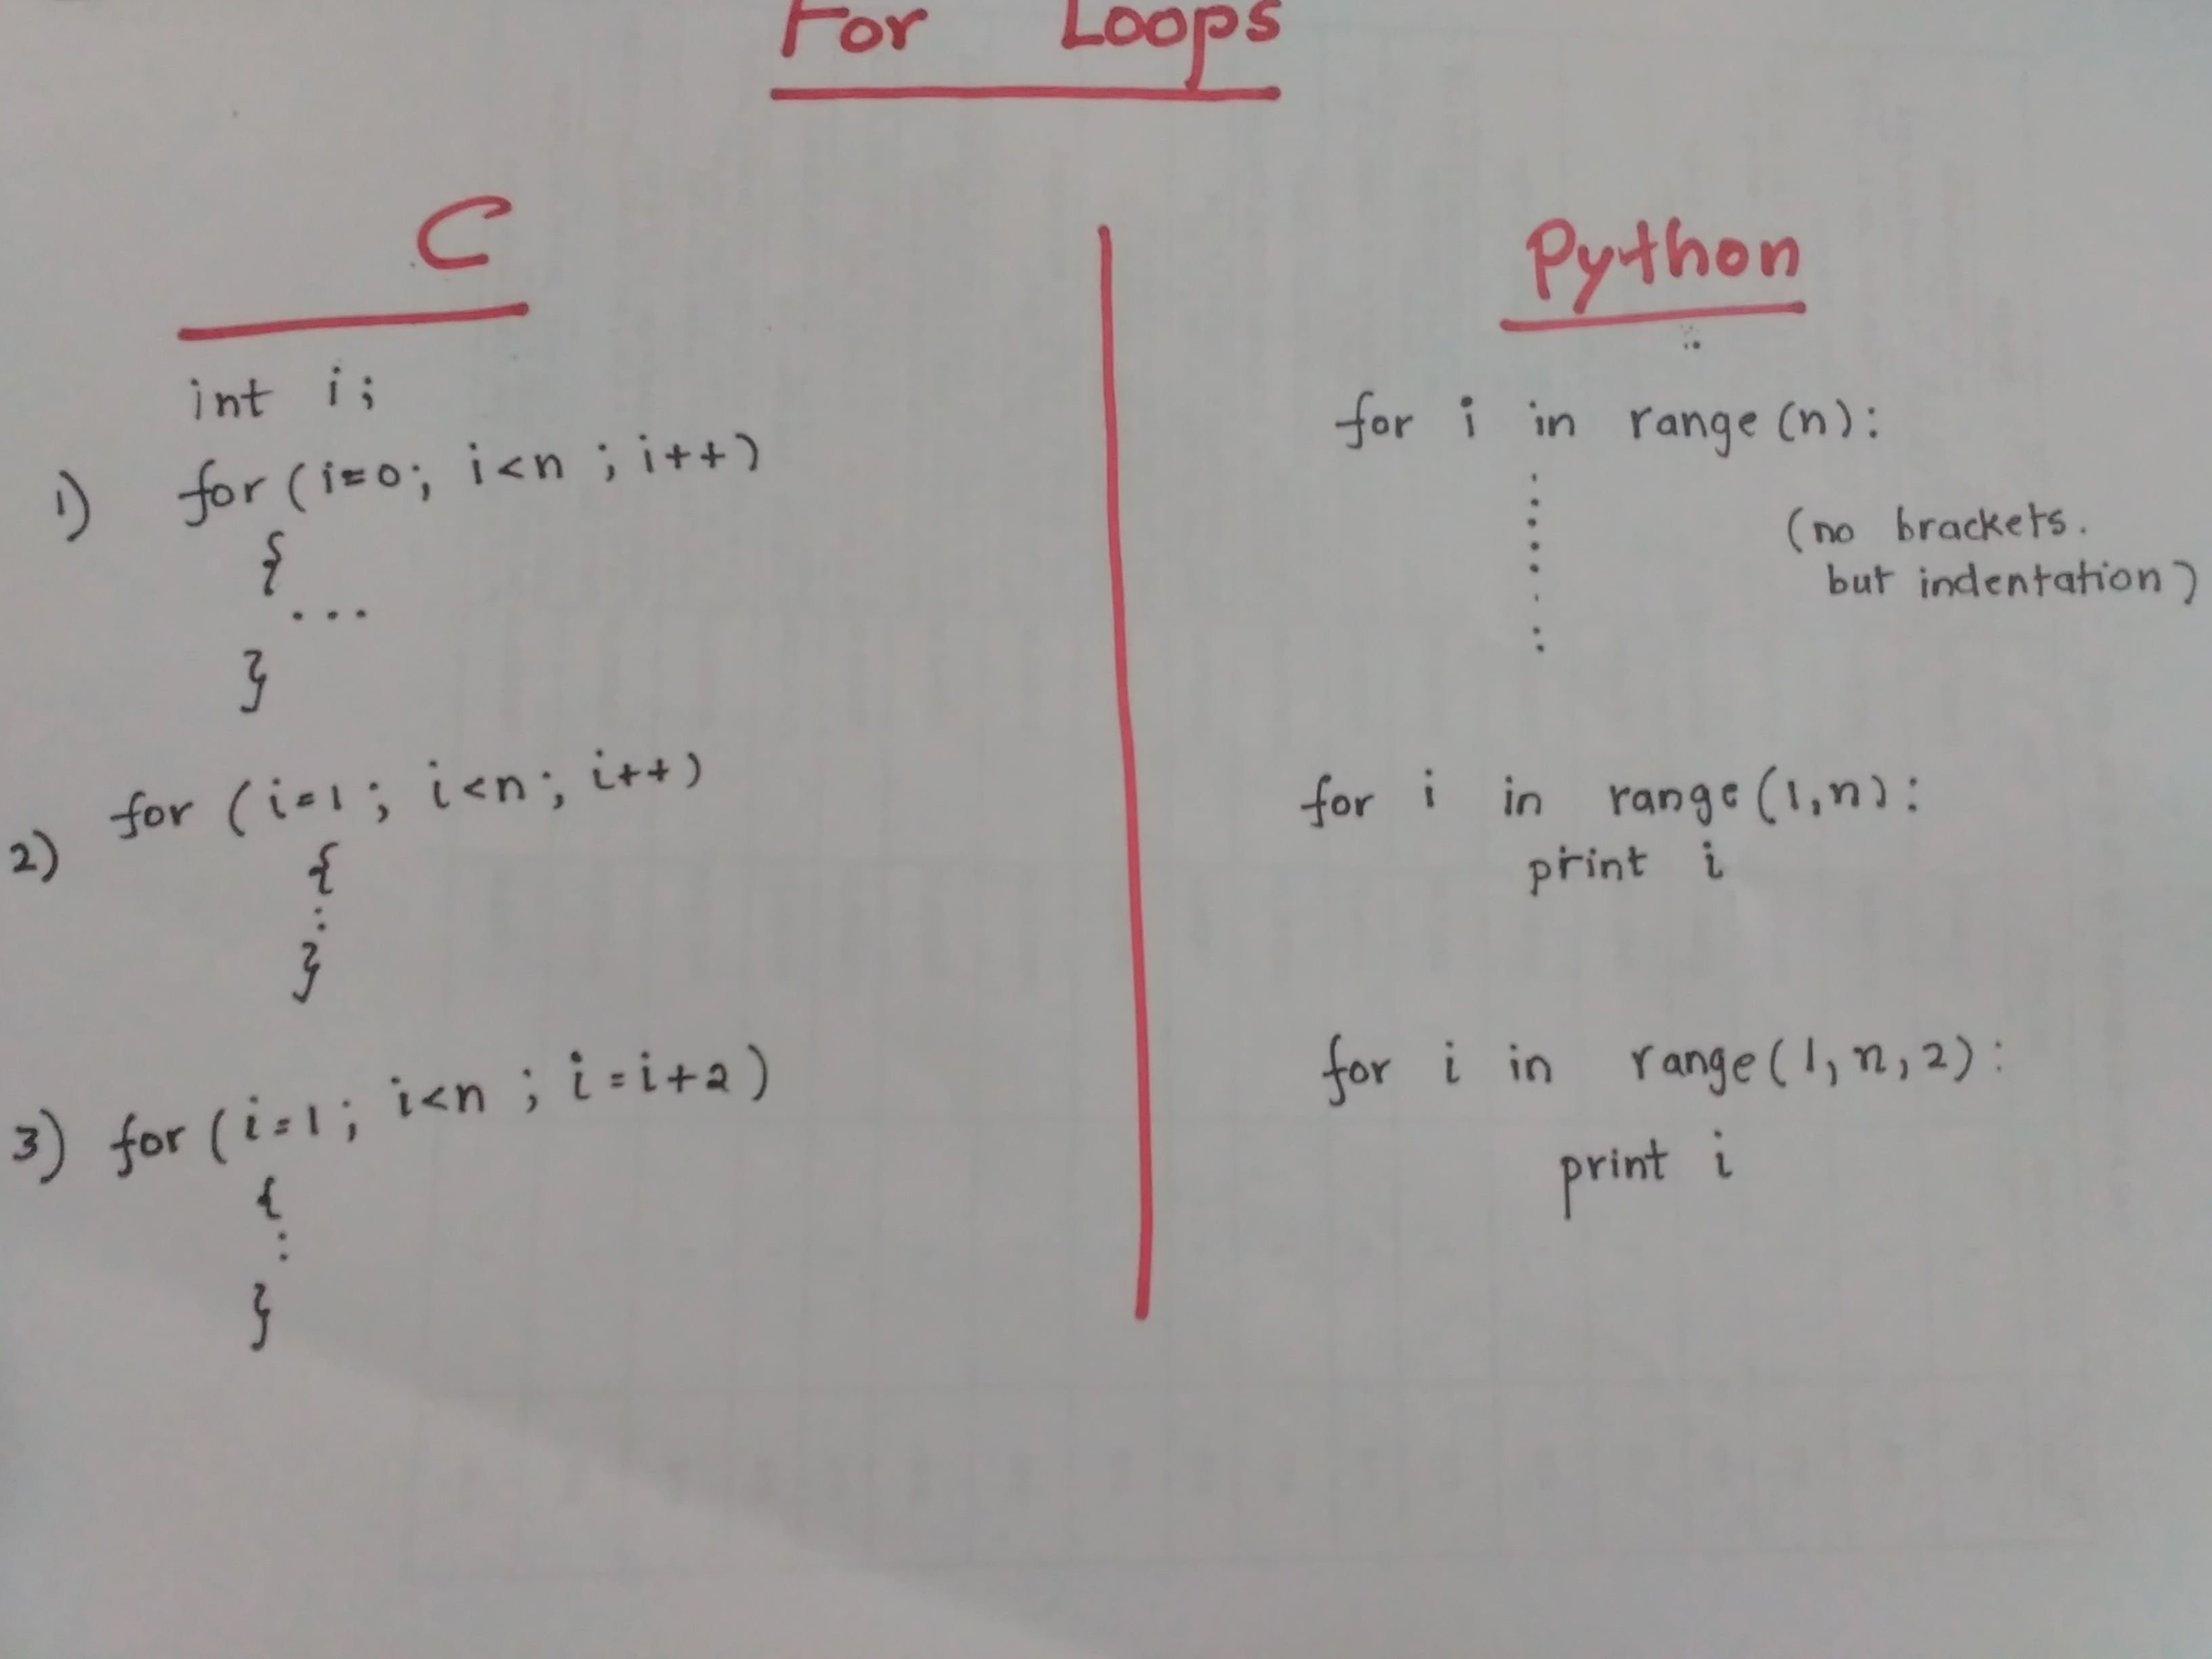 For Loops
C
int i;
1) for (i=0; i<n ; i++)
{
...
}
2) for (i=1; i<n; i++)
{
:
}
3) for (i=1; i<n ; i=i+2)
{
:
}
Python
for i in range (n):
(no brackets.
but indentation)
for i in range (1,n):
print i
for i in range (1,n,2):
print i